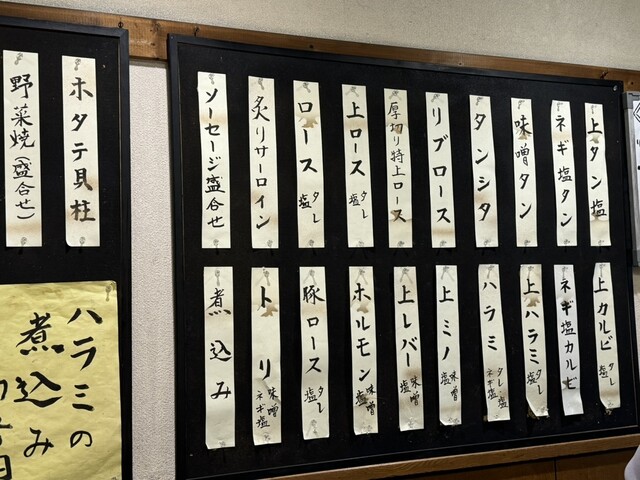 上タン塩
ネギ塩タン
味噌タン
タンシタ
リブロース
厚切り特上ロース
上ロース タレ 塩
ロース タレ 塩
炙りサーロイン
ソーセージ盛合せ
上カルビ タレ 塩
ネギ塩カルビ
上ハラミ タレ 塩
ハラミ タレ 塩 ネギ塩
上ミノ 味噌 塩
上レバー 味噌 塩
ホルモン 味噌 塩
豚ロース タレ 塩
トリ 味噌 ネギ塩
煮込み
ホタテ貝柱
野菜焼(盛合せ)
ハラミの
煮込み